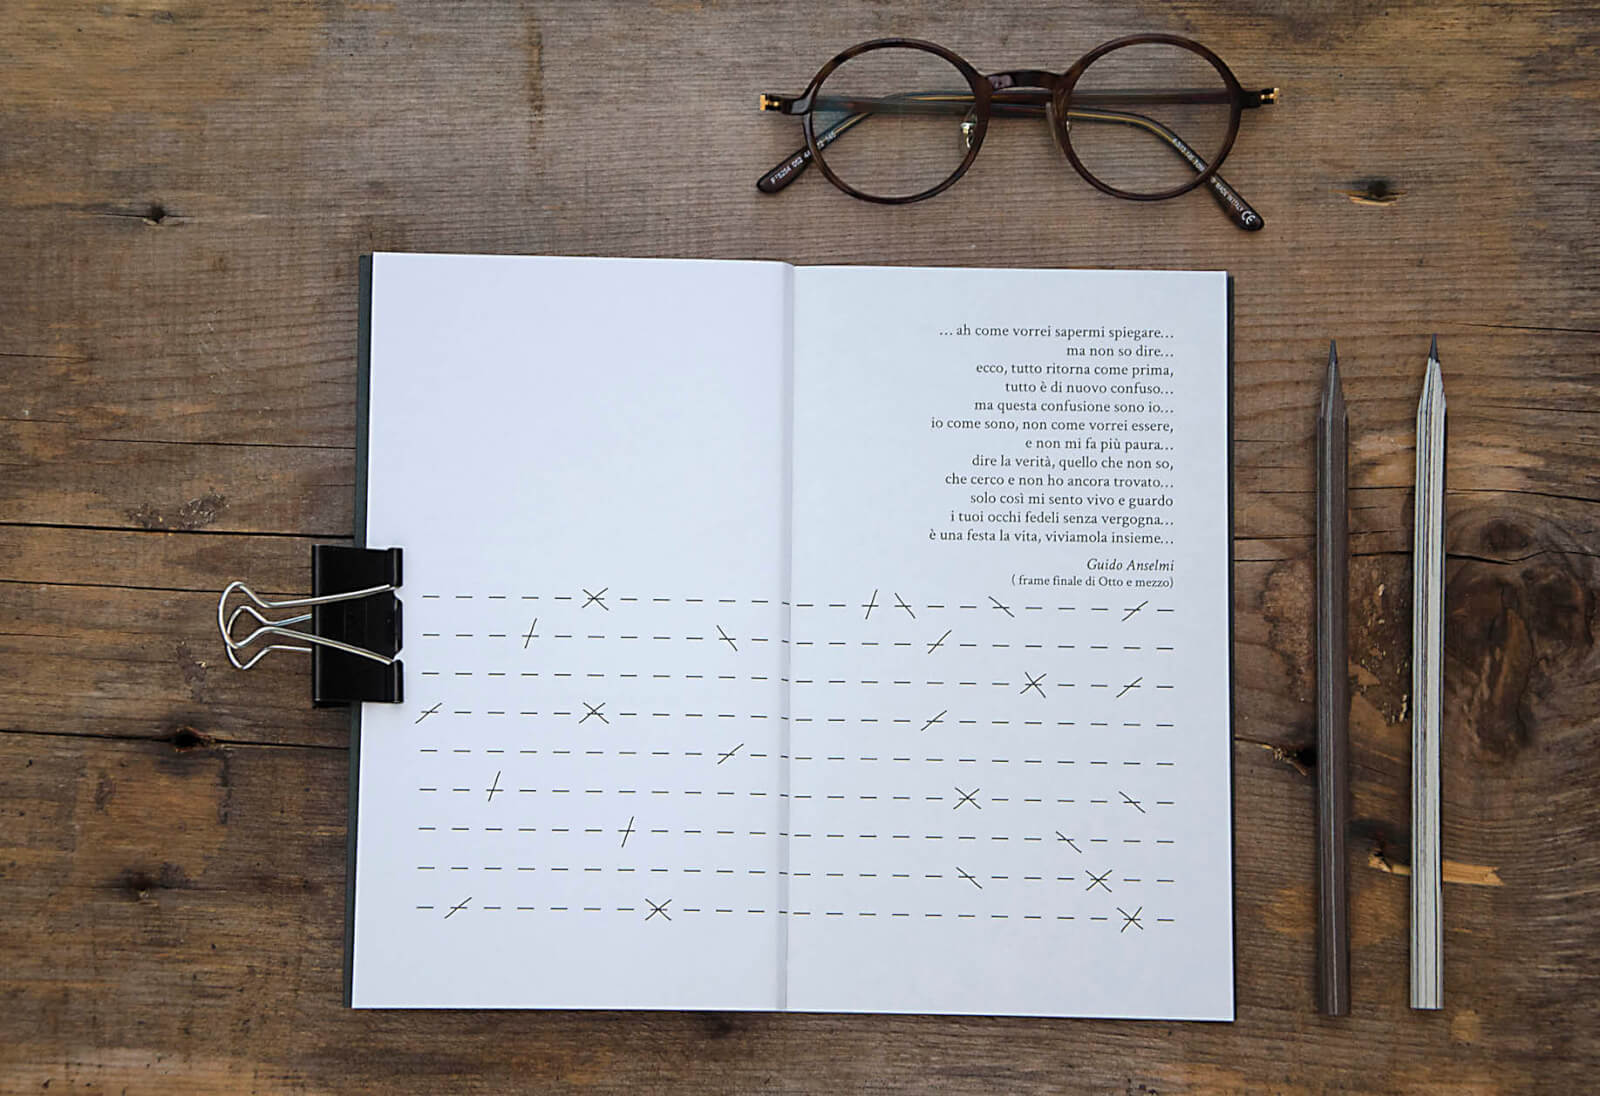 … ah come vorrei sapermi spiegare…
ma non so dire…
ecco, tutto ritorna come prima,
tutto è di nuovo confuso…
ma questa confusione sono io…
io come sono, non come vorrei essere,
e non mi fa più paura…
dire la verità, quello che non so,
che cerco e non ho ancora trovato…
solo così mi sento vivo e guardo
i tuoi occhi fedeli senza vergogna…
è una festa la vita, viviamola insieme…
Guido Anselmi
( frame finale di Otto e mezzo)
MADE IN ITALY CE